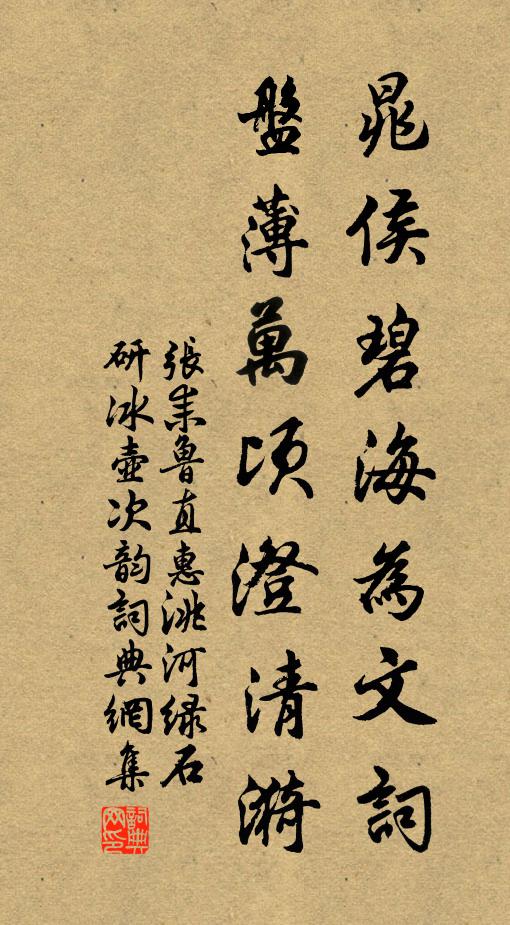 晁侯碧海為文詞
盤薄萬頃澄清漪
張耒魯直惠洮河緑石
研冰壺次韵詞典網集
詞典
网印